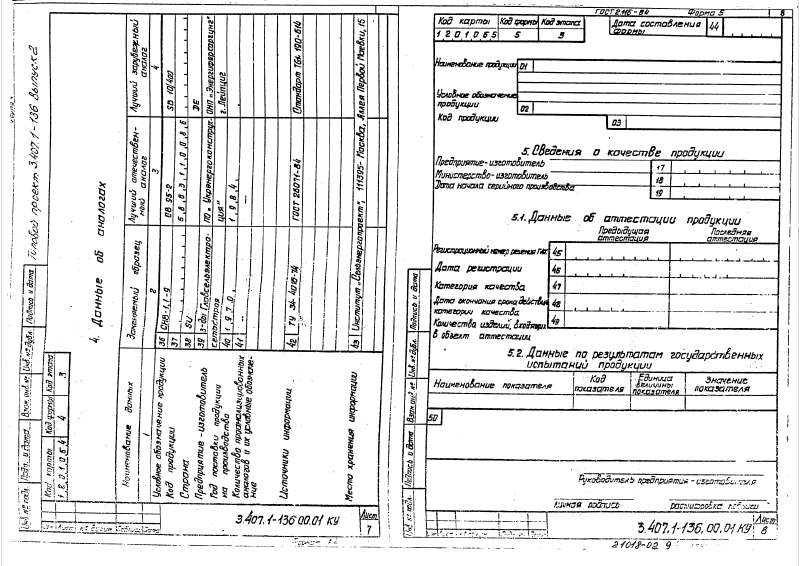 Типовой проект 3.407.1-136 Выпуск 2
Код карты Код формы Код этапа
1 2 0 1 0 6 4 4 3
4. Данные об аналогах
Наименование данных Заменяемый образец Лучший отечественный аналог Лучший зарубежный аналог
1 2 3 4
Условное обозначение продукции 36 СНВ-1,1-9 СВ 95-2 SB 10/400
Код продукции 37 5 8 6 3 1 1 0 0 8 6
Страна 38 SU DE
Предприятие-изготовитель 39 з-ды Главсельэлектросетьстроя ПО "Укрэнергоконструкция" г. Лейпциг
Год поставки продукции на производство 40 1 9 7 0 1 9 8 4
Количество проанализированных аналогов и их условные обозначение 41
Источники информации 42 ТУ 34 ГОСТ 26071-84 Стандарт TGL 190-614
Место хранения информации 43 Институт "Сельэнергопроект", 111395-Москва, Аллея Первой Маевки, 15
Инв. № подл. Подп. и дата Взам. инв. № Инв. № дубл. Подпись и дата
3.407.1-136 00.01 КУ Лист 7
ГОСТ 2.116-84 Форма 5 8
Код карты Код формы Код этапа
1 2 0 1 0 6 5 5 3
Дата составления формы 44
Наименование продукции 01
Условное обозначение продукции 02
Код продукции 03
5. Сведения о качестве продукции
Предприятие-изготовитель 17
Министерство-изготовитель 18
Дата начала серийного производства 19
5.1. Данные об аттестации продукции
Предыдущая аттестация Последняя аттестация
Регистрационный номер решения ГАК 45
Дата регистрации 46
Категория качества 47
Дата окончания срока действия категории качества 48
Количества изделий, входящих в объект аттестации 49
5.2. Данные по результатам государственных
испытаний продукции
Наименование показателя Код показателя Единица величины показателя Значение показателя
50
Руководитель предприятия-изготовителя
личная подпись расшифровка подписи
Инв. № подл. Подпись и дата Взам. инв. № Инв. № дубл. Подпись и дата
3.407.1-136.00.01 КУ Лист 8
21018-02 9